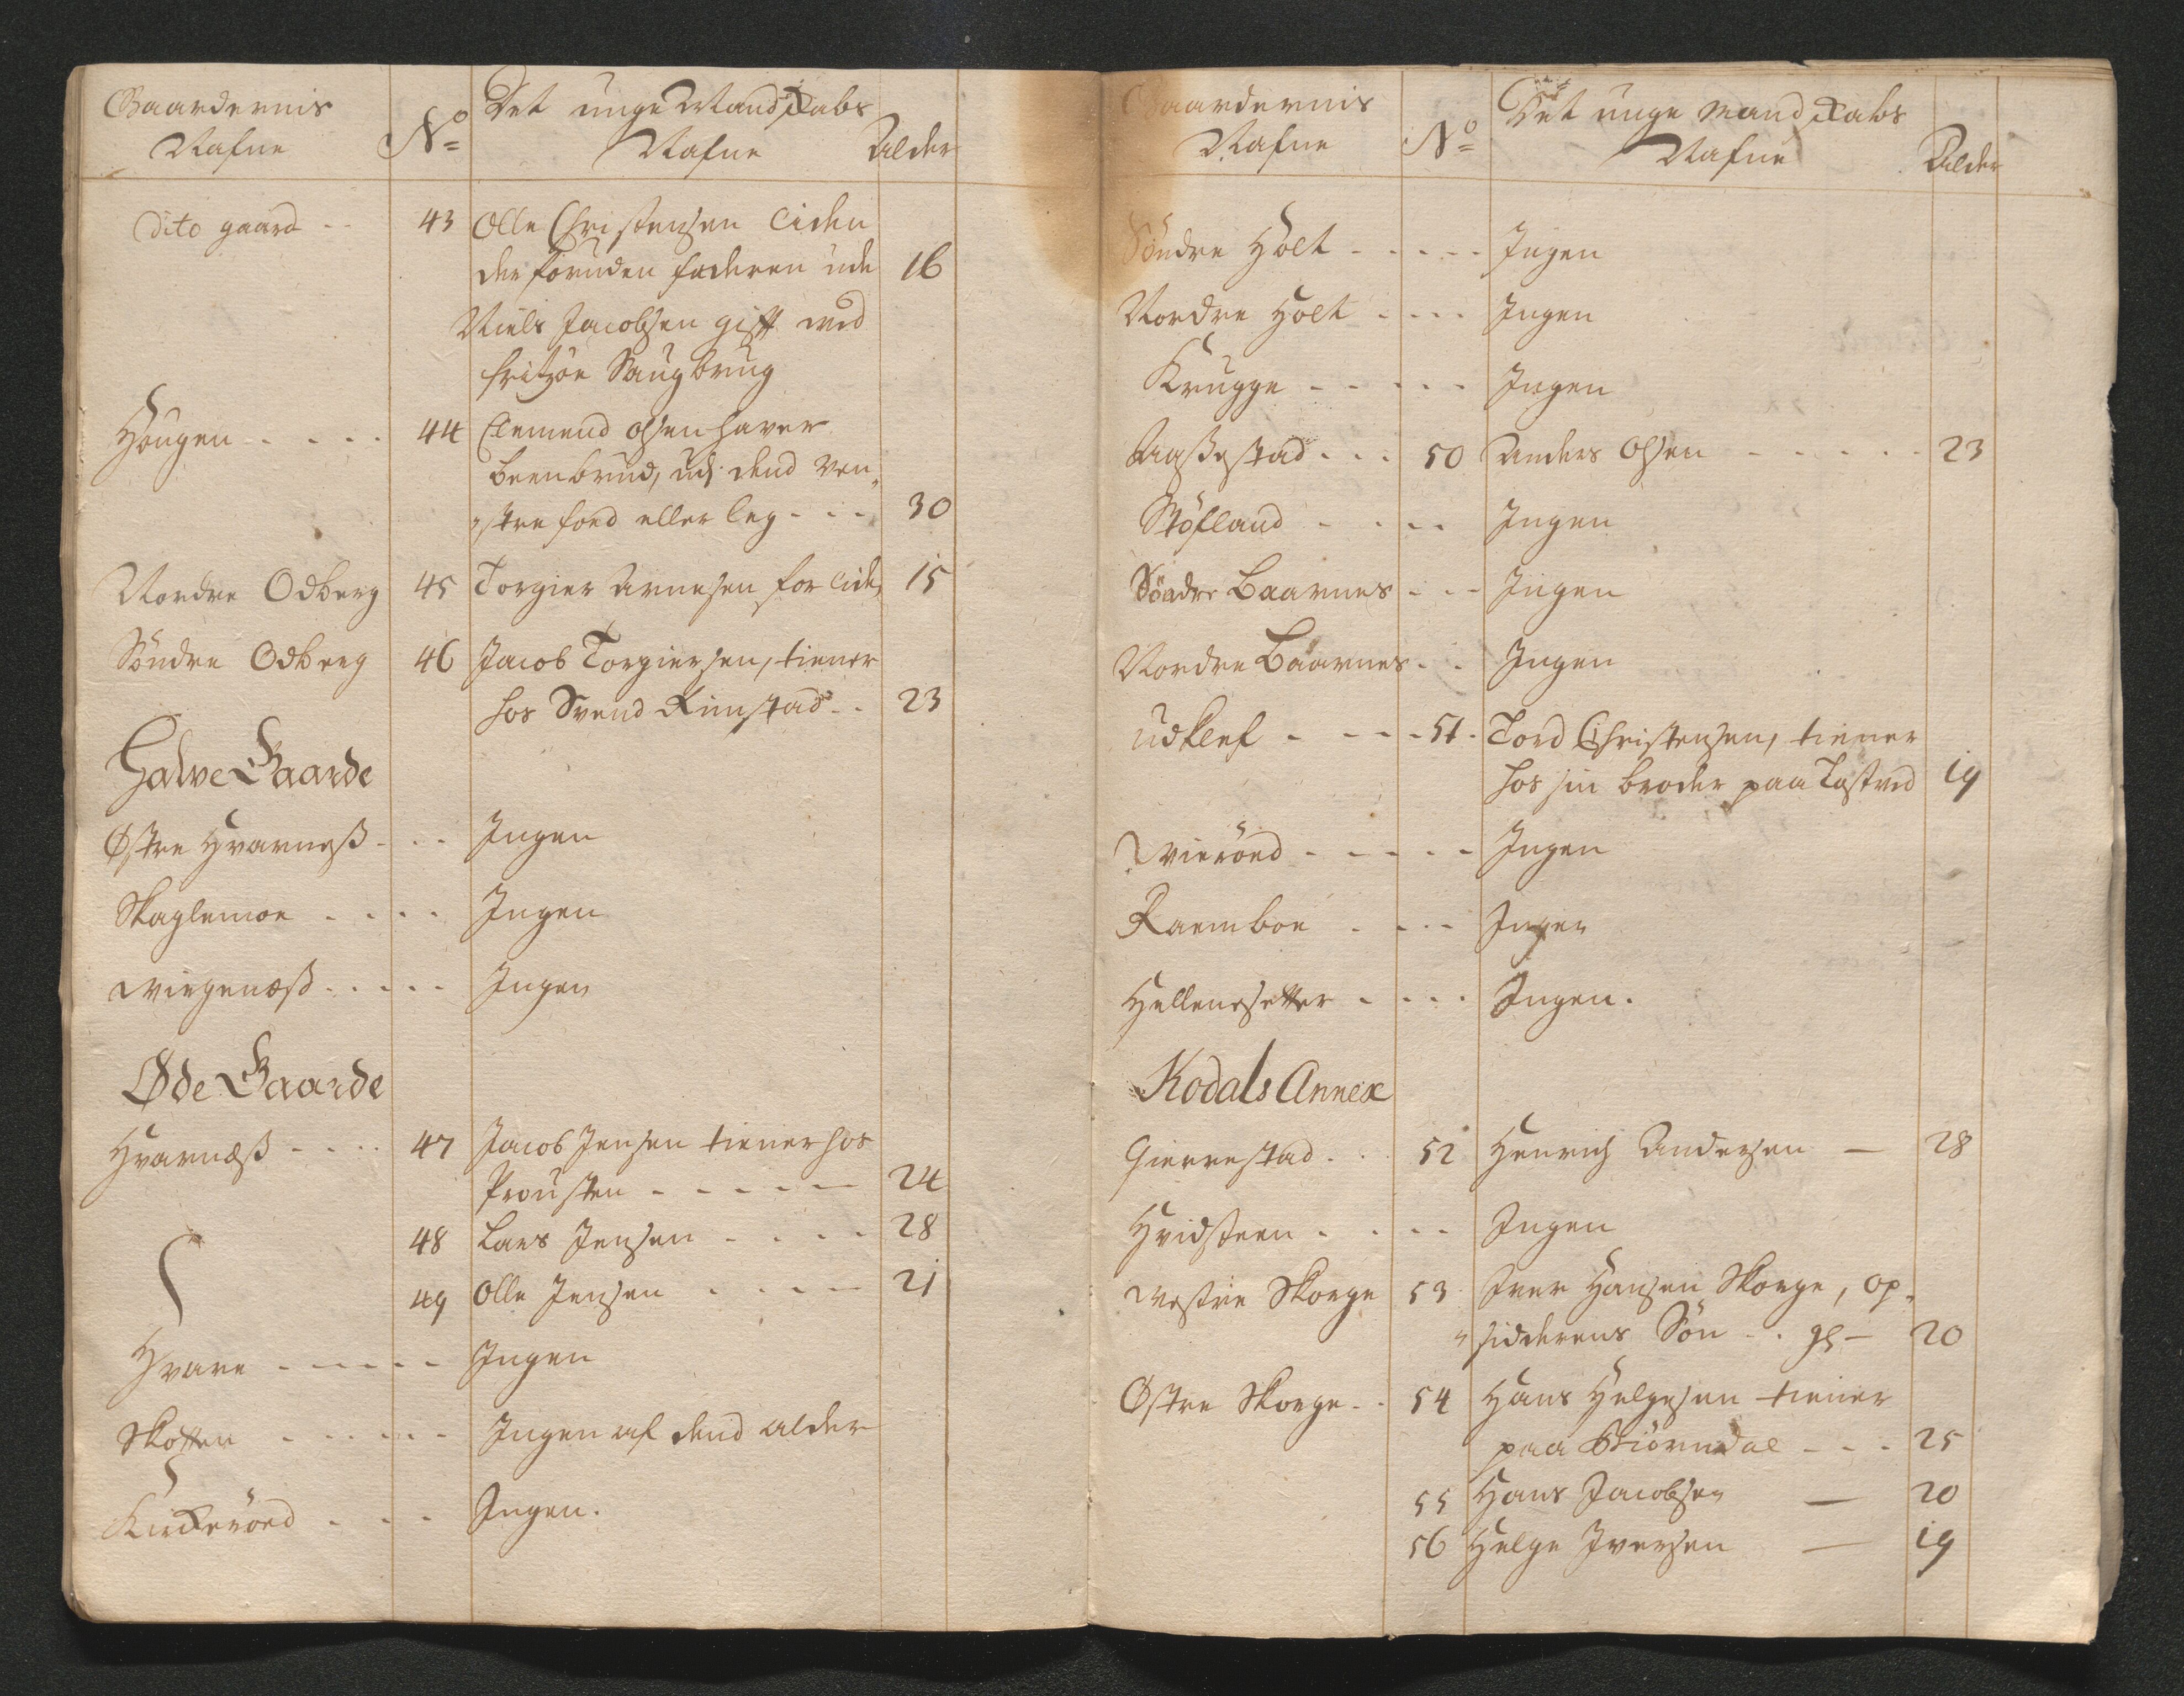 Gaardernis Nafne No Det unge Mandskabs Nafne Alder
dito gaard -- 43 Olle Christensen liden
der foruden faderen ude 16
Niels Jacobsen gift ved
fritzøe Saugbrug
Hougen - - - - 44 Clemend Olsen haver
beenbrud, udj dend ven-
stre foed eller leg - - - 30
Nordre Odberg 45 Torgier Arnesen for liden 15
Söndre Odberg 46 Jacob Torgiersen, tiener
hos Svend Rimstad - - 23
Halve Gaarde
Østre Hvarneß - - - Ingen
Skaglemoe - - - - Ingen
Viegenæß - - - - - Ingen
Øde Gaarde
Hvarnæß - - - - 47 Jacob Jensen tiener hos
Prousten - - - - - 24
48 Lars Jensen - - - - 28
49 Olle Jensen - - - - 21
Hvare - - - - - Ingen
Skotten - - - - - Ingen af dend alder
Kirkeröed - - - Ingen.
Gaardernis Nafne No Det unge Mandskabs Nafne Alder
Söndre Holt - - - - - Ingen
Nordre Holt - - - - Ingen
Krugge - - - - - Ingen
Aaßestad - - - 50 Anders Olsen - - - - - 23
Støfland - - - - Ingen
Söndre Baarnes - - - Ingen
Nordre Baarnes - - Ingen
Udklef - - - - 51. Tord Christensen, tiener
hos sin broder paa Tostved 19
Vieröed - - - - - Ingen
Raemboe - - - - Ingen
Hellenesetter - - - - Ingen.
Kodals Annex
Gierrestad - - 52 Henrich Andersen — 28
Hvidsteen - - - - Ingen
Westre Skorge 53 Iver Hansen Skorge, op-
sidderens Sön - - — 20
Østre Skorge - - 54 Hans Helgesen tiener
paa Biörndal - - - 25
55 Hans Jacobsen — 20
56 Helge Iversen — 19